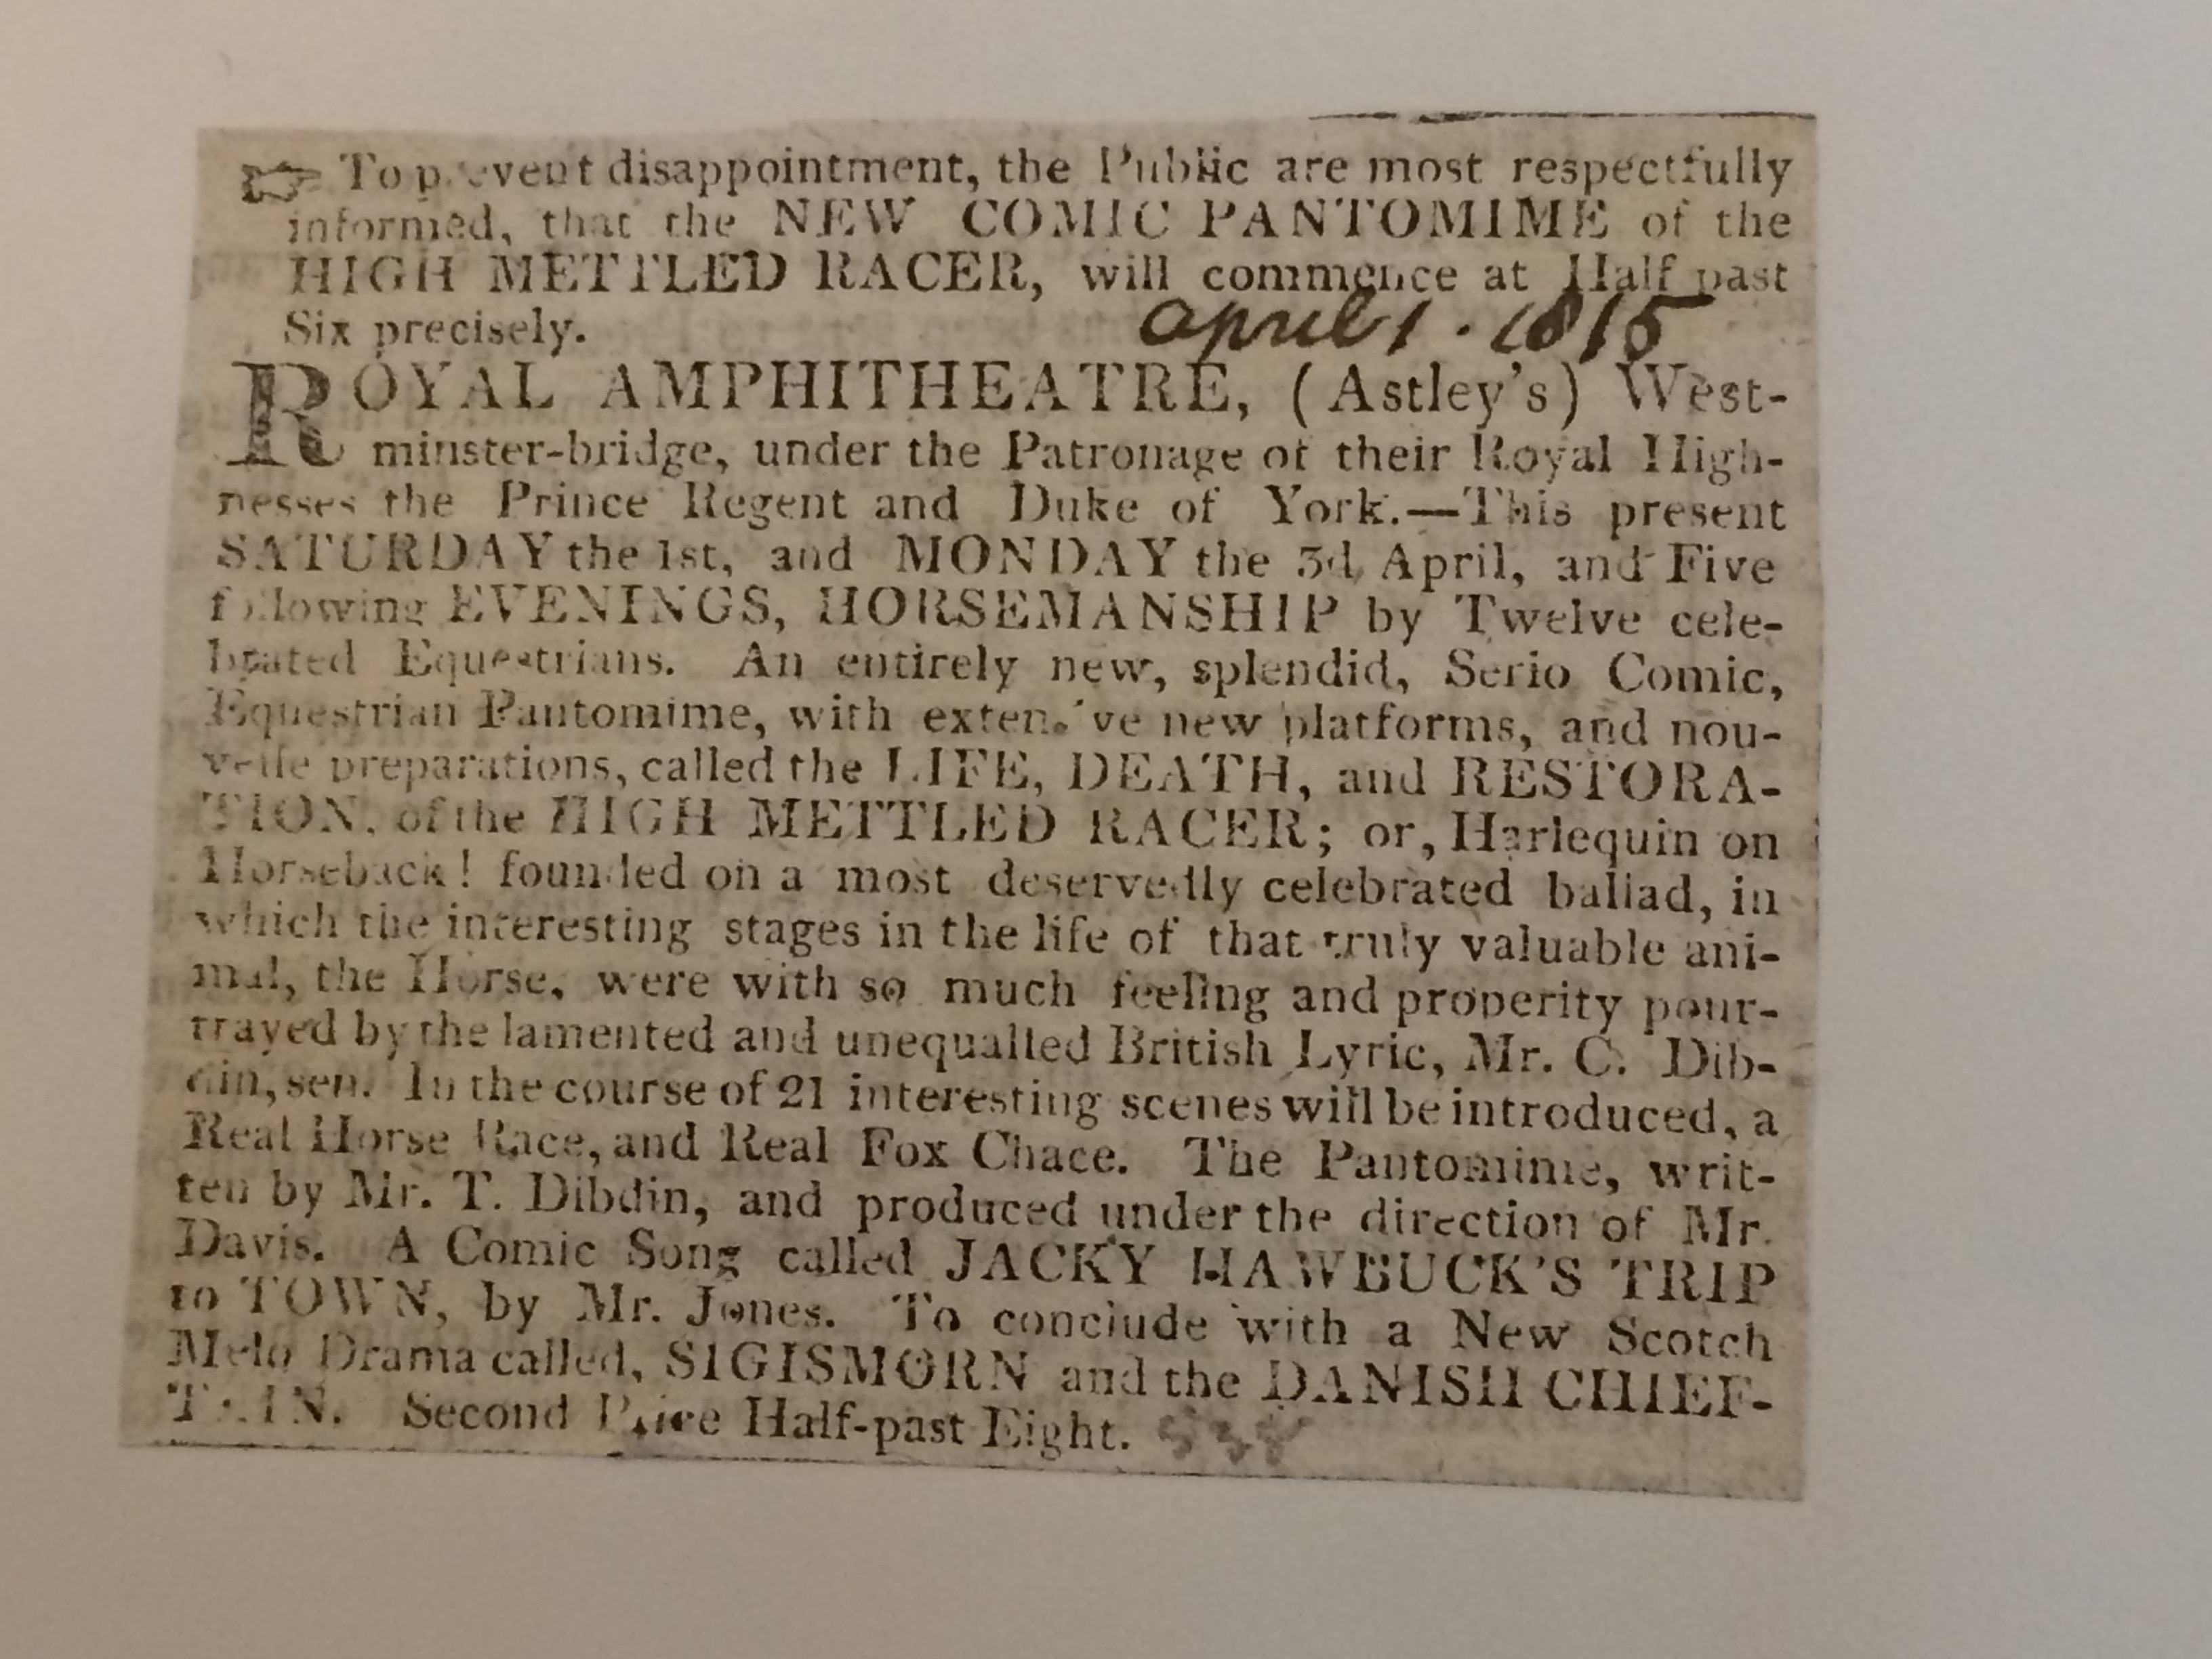 ☞ To prevent disappointment, the Public are most respectfully
informed, that the NEW COMIC PANTOMIME of the
HIGH METTLED RACER, will commence at Half past
Six precisely.
april 1 . 1815
ROYAL AMPHITHEATRE, (Astley's) West-
minster-bridge, under the Patronage of their Royal High-
nesses the Prince Regent and Duke of York.—This present
SATURDAY the 1st, and MONDAY the 3d April, and Five
following EVENINGS, HORSEMANSHIP by Twelve cele-
brated Equestrians. An entirely new, splendid, Serio Comic,
Equestrian Pantomime, with extensive new platforms, and nou-
velle preparations, called the LIFE, DEATH, and RESTORA-
TION, of the HIGH METTLED RACER; or, Harlequin on
Horseback! founded on a most deservedly celebrated ballad, in
which the interesting stages in the life of that truly valuable ani-
mal, the Horse, were with so much feeling and properity pour-
trayed by the lamented and unequalled British Lyric, Mr. C. Dib-
din, sen. In the course of 21 interesting scenes will be introduced, a
Real Horse Race, and Real Fox Chace. The Pantomime, writ-
ten by Mr. T. Dibdin, and produced under the direction of Mr.
Davis. A Comic Song called JACKY HAWBUCK'S TRIP
to TOWN, by Mr. Jones. To conclude with a New Scotch
Melo Drama called, SIGISMORN and the DANISH CHIEF-
TAIN. Second Price Half-past Eight.